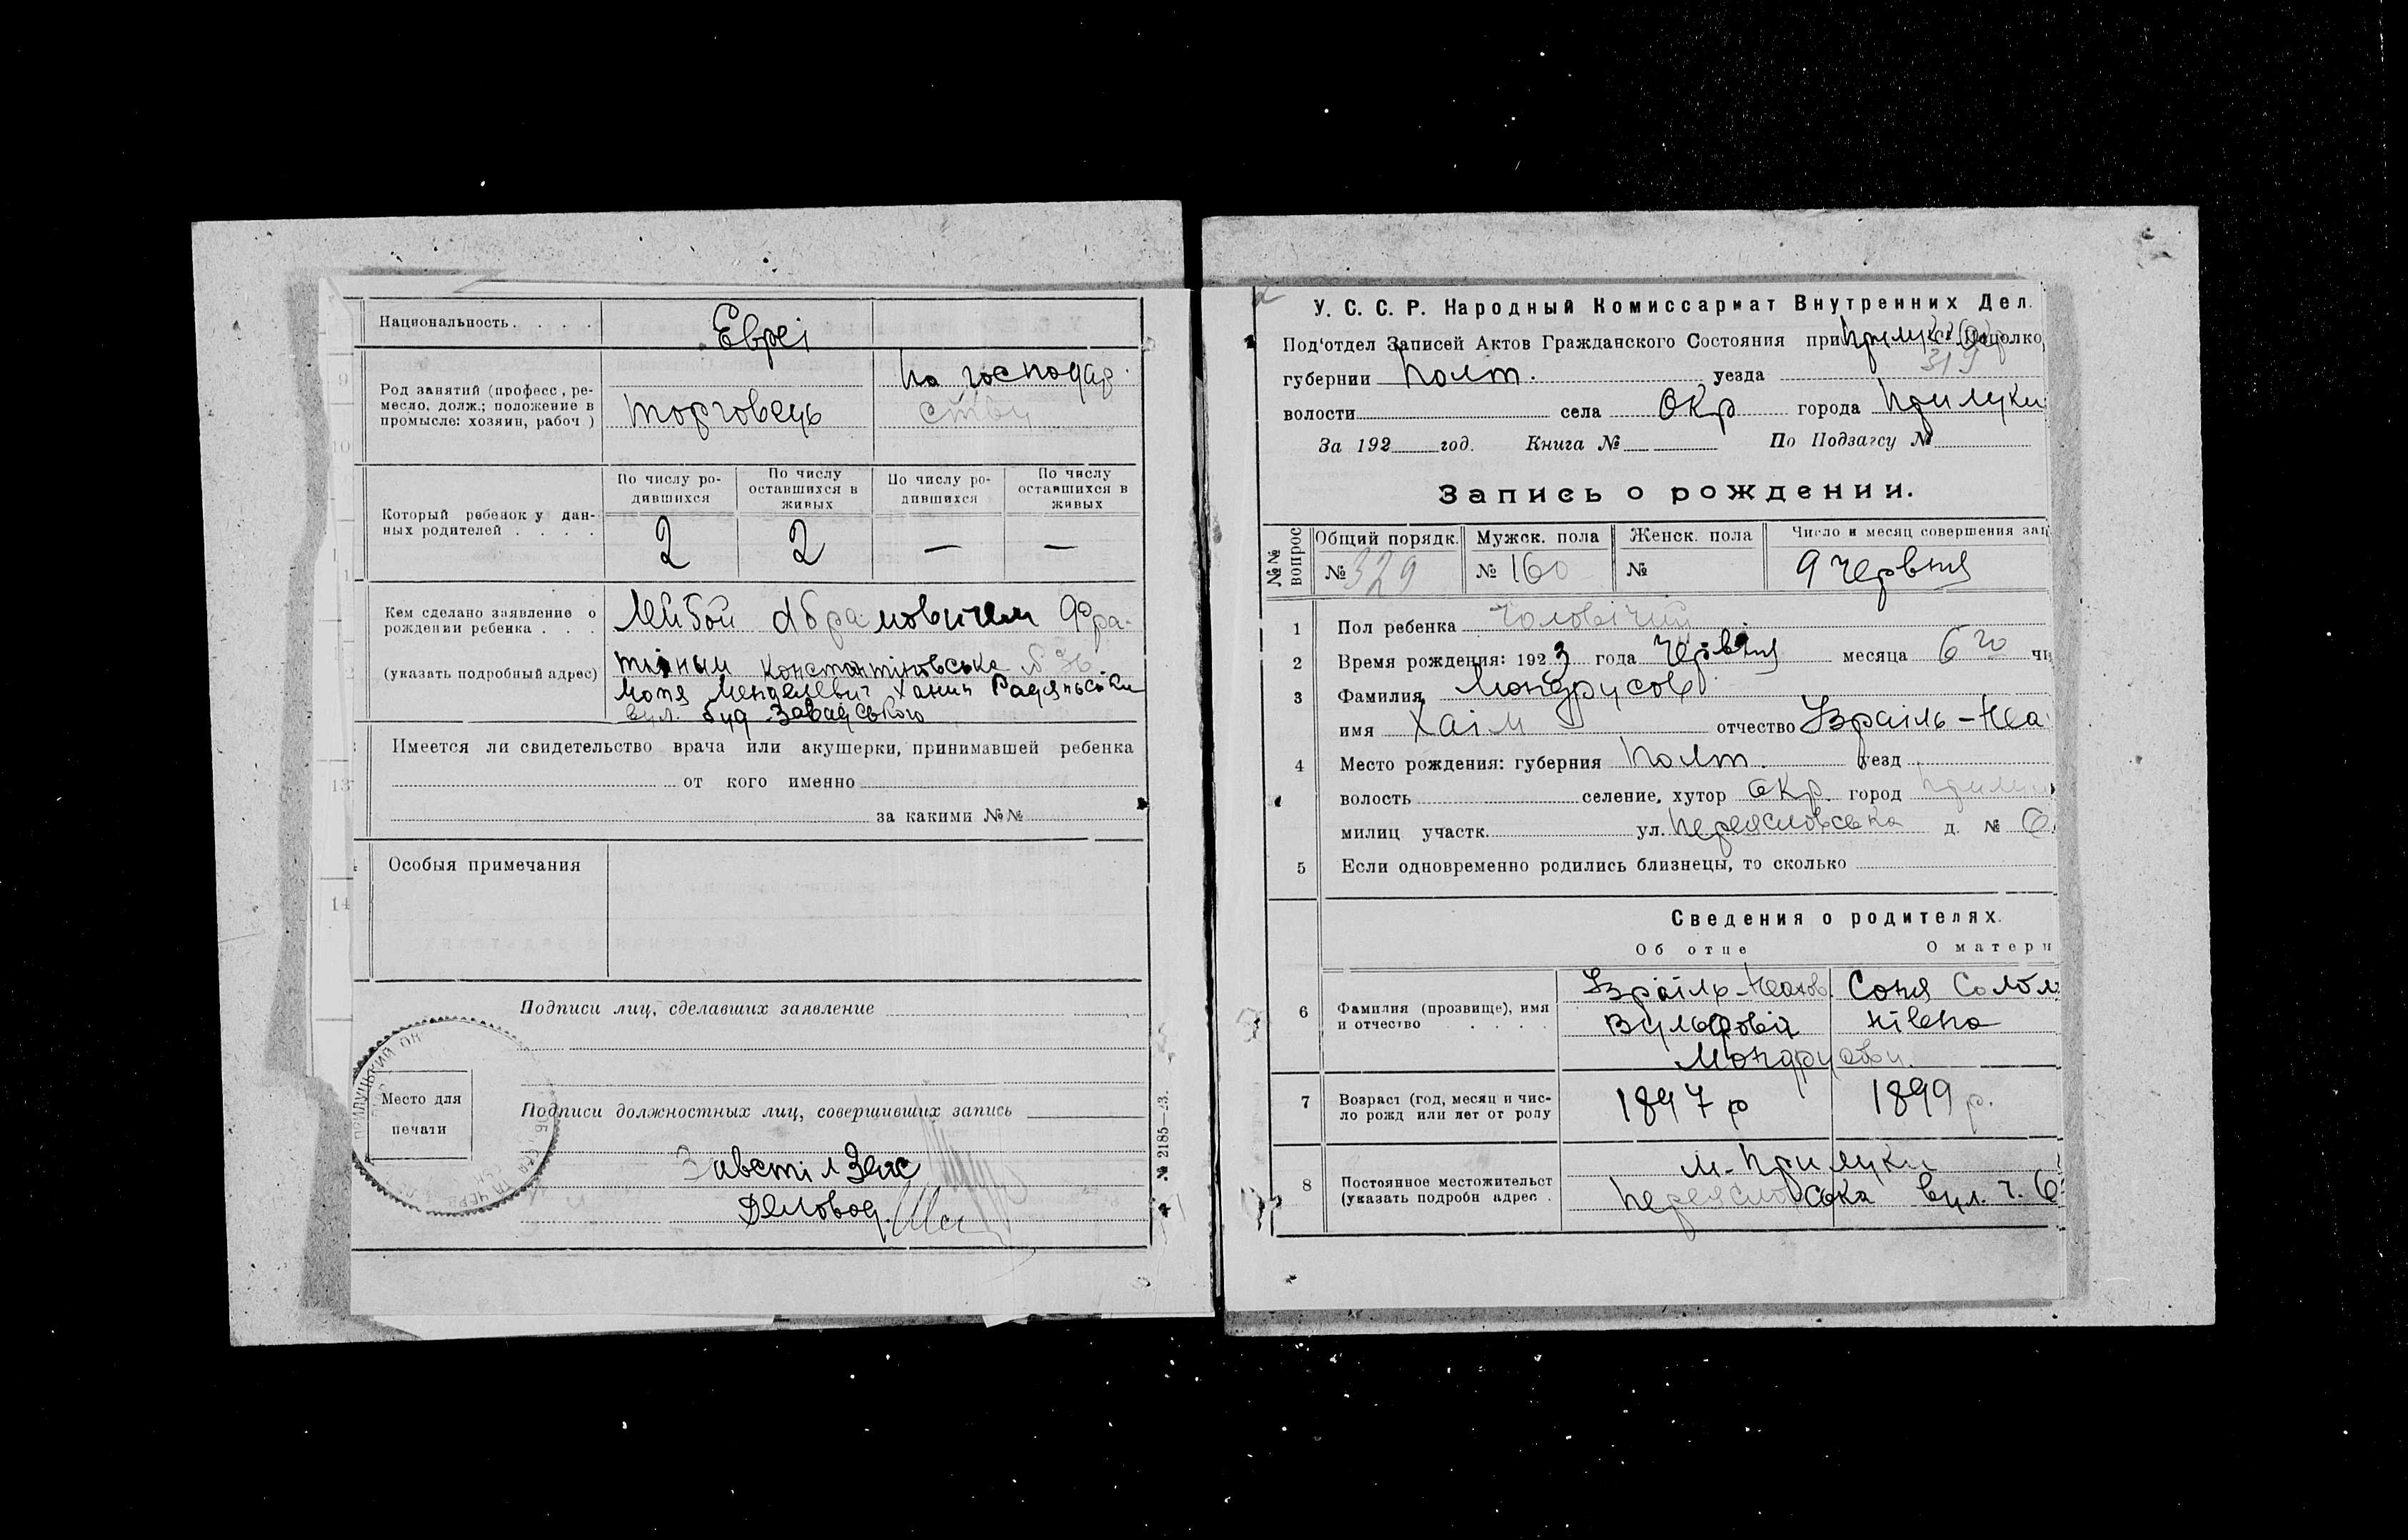 Национальность. . . . .
Евреі
9
Род занятий (професс, ре-
месло, долж.; положение в
промысле: хозяин, рабоч )
торговець
на господар
ству
10
Который ребенок у дан-
ных родителей . . . .
По числу ро-
дившихся
По числу
оставшихся в
живых
По числу ро-
дившихся
По числу
оставшихся в
живых
2 2 — —
Кем сделано заявление о
рождении ребенка . . .
(указать подробный адрес)
Лейбой Абрамовичем
Константіновська
Мотя Менделевич Ханин Радяньськи
вул. буд Завадського
Имеется ли свидетельство врача или акушерки, принимавшей ребенка
13
от кого именно
за какими №№
Особыя примечания
14
Подписи лиц, сделавших заявление
Место для
печати
ПРИЛУЦЬКИЙ ОК
Подписи должностных лиц, совершивших запись
Діловод.
№ 2185—23.
У. С. С. Р. Народный Комиссариат Внутренних Дел.
Под'отдел Записей Актов Гражданского Состояния при
319
губернии Полт. уезда
волости села Окр города Прилуки
За 192 год. Книга № По Подзагсу №
Запись о рождении.
№№ вопрос
Общий порядк. Мужск. пола Женск. пола Число и месяц совершения зап
№ 329 № 160 № 9 Червня
1 Пол ребенка Чоловічий
2 Время рождения: 1923 года Червня месяца 6 го чи
3 Фамилия Мондрусов
имя Хаім отчество Ізраіль-Неа
4 Место рождения: губерния Полт. уезд
волость селение, хутор Окр. город Прилуки
милиц участк. ул. Переясловська д. № 6
5 Если одновременно родились близнецы, то сколько
Сведения о родителях.
Об отце О матери
6 Фамилия (прозвище), имя
и отчество . . . .
Ізраіль-Неахов. Соня Солом
Вульфовіч нівна
Мондрусови.
7 Возраст (год, месяц и чис-
ло рожд или лет от роду
1897 р 1899 р.
8 Постоянное местожительст
(указать подробн адрес .
м. Прилуки
Переясловська вул. ч. 6